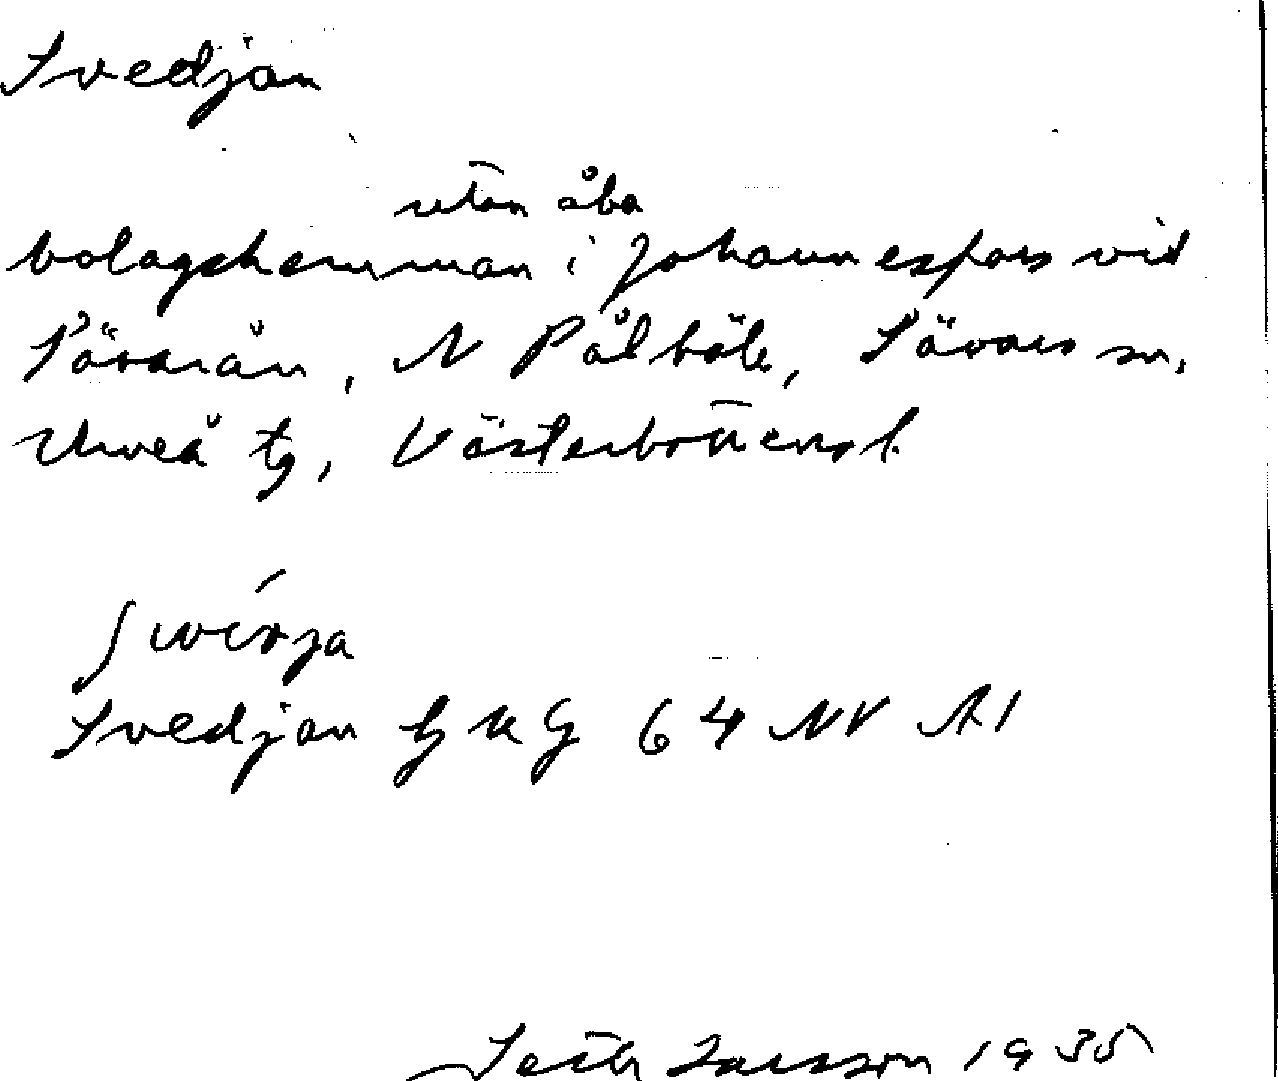 Svedjan
utan åbo
bolagshemman i Johannesfors vid
Sävarån, N Pålböle, Sävars sn,
Umeå tg, Västerbottens l.
Svedjan GKG 64 NV A1
Seth Larsson 1935